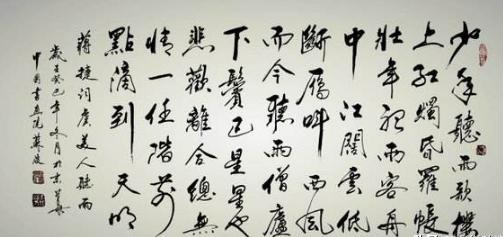 少年聽雨歌樓
上紅燭昏羅帳
壯年聽雨客舟
中江闊雲低
斷雁叫西風
而今聽雨僧廬
下鬢已星星也
悲歡離合總無
情一任階前
點滴到天明
蔣捷詞虞美人聽雨
歲在癸巳年冬月於京華
中國書畫院